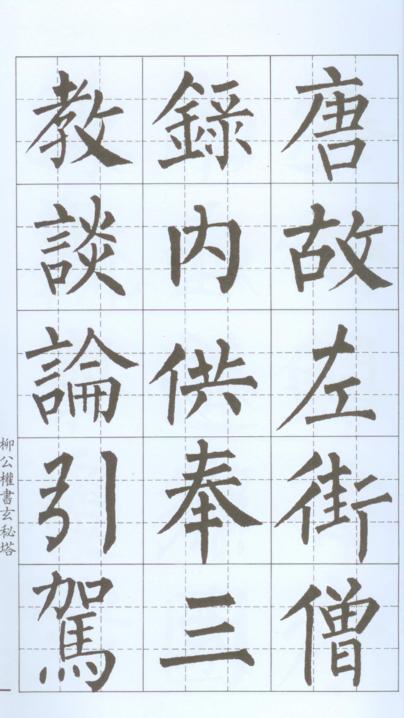 唐故左街僧
録内供奉三
教談論引駕
柳公權書玄秘塔